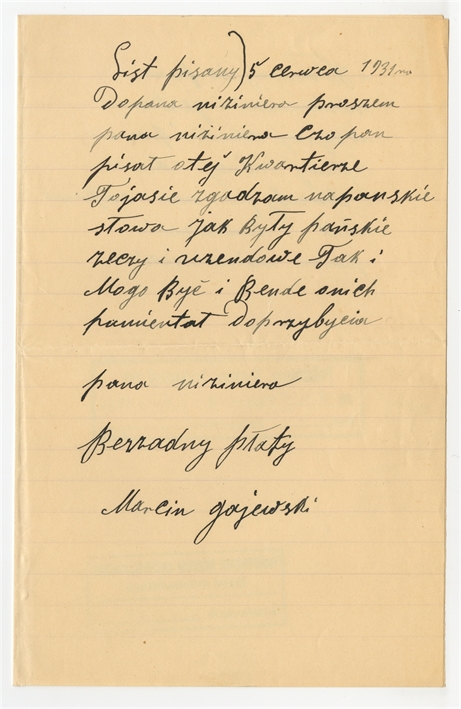 List pisany) 5 cerwca 1931 ro
Dopana niziniera proszem
pana niziniera Czo pan
pisat otej Kwartierze
Tojasie zgadzam napanskie
stowa jak Byty pańskie
zeczy i uzendowe Tak i
Mogo Być i Bende onich
pamientat Doprzybycia
pana niziniera
Berzadny ptaty
Marcin gajewski